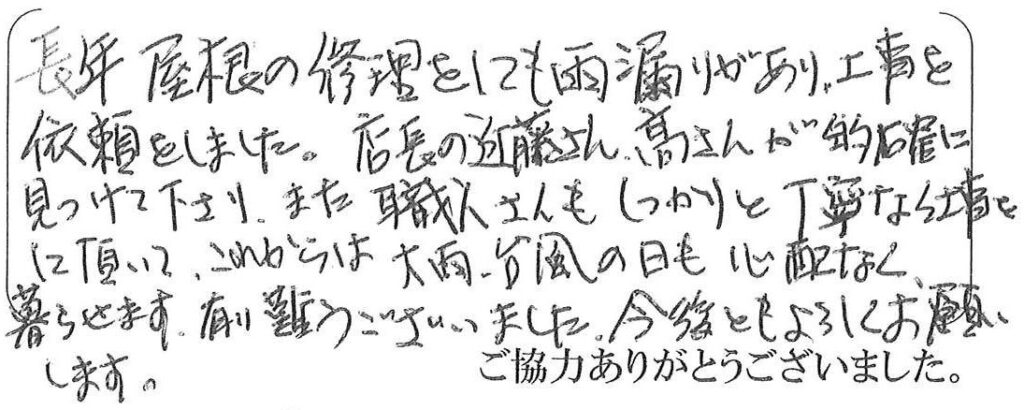 長年屋根の修理をしても雨漏りがあり、工事を
依頼をしました。店長の近藤さん、髙さんが的確に
見つけて下さり、また職人さんもしっかりと丁寧な仕事を
して頂いて、これからは大雨、台風の日も心配なく
暮らせます。有難うございました。今後ともよろしくお願い
します。
ご協力ありがとうございました。